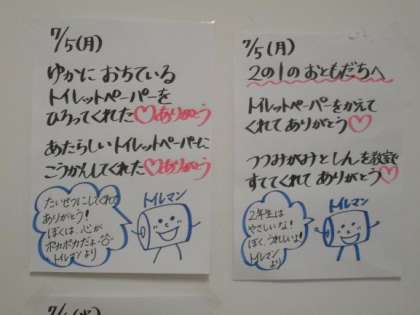 7/5(月)
ゆかに おちている
トイレットペーパーを
ひろってくれた♡ありがとう
あたらしいトイレットペーパーに
こうかんしてくれた♡ありがとう
たいせつにしてくれて
ありがとう!
ぼくは、心が
ポカポカだよ
トイレマンより
トイレマン
7/5(月)
2の1のおともだちへ
トイレットペーパーをかえて
くれて ありがとう♡
つつみがみと しんを教室で
すててくれて ありがとう♡
2年生は
やさしいな!
ぼく、うれしいな!
トイレマン
より
トイレマン